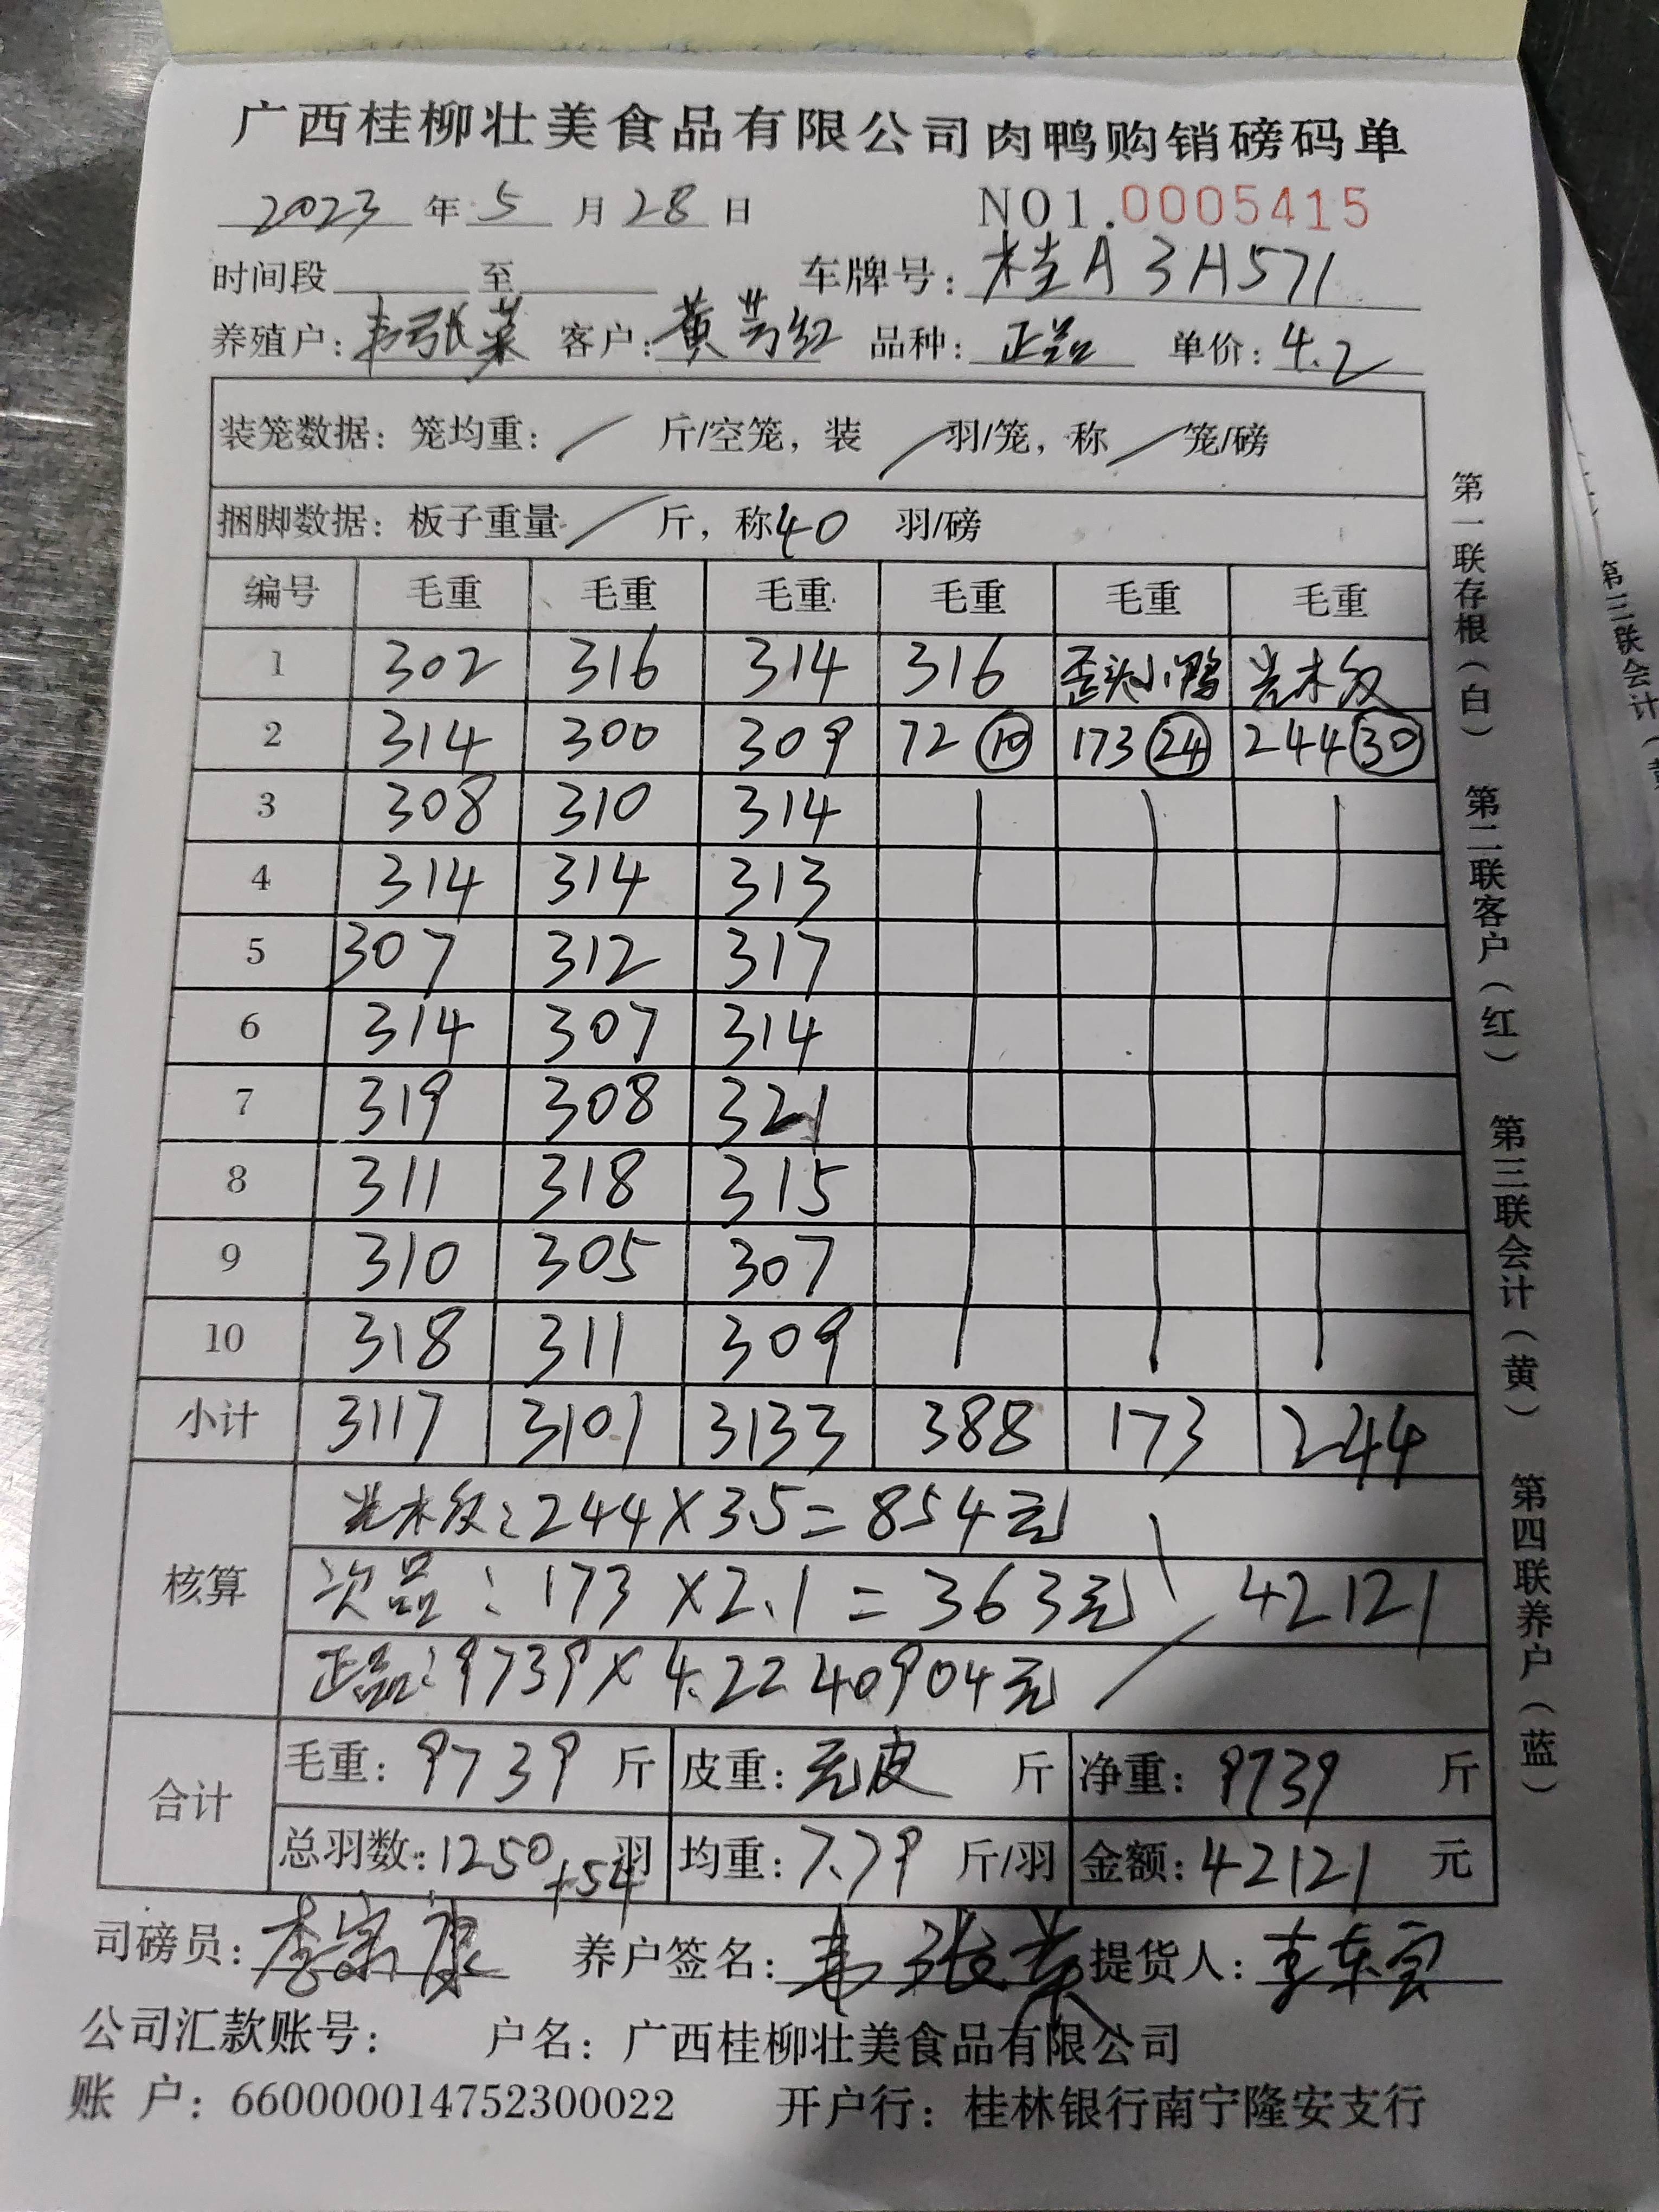 广西桂柳壮美食品有限公司肉鸭购销磅码单
2023 年 5 月 28 日 NO1.0005415
时间段 至 车牌号: 桂A3H571
养殖户: 韦张荣 客户: 黄芳红 品种: 正品 单价: 4.2
装笼数据: 笼均重: / 斤/空笼, 装 / 羽/笼, 称 / 笼/磅
捆脚数据: 板子重量 / 斤, 称 40 羽/磅
编号 毛重 毛重 毛重 毛重 毛重 毛重
1 302 316 314 316 歪头小鸭 光木及
2 314 300 309 72 ⑩ 173 ㉔ 244 ㉚
3 308 310 314
4 314 314 313
5 307 312 317
6 314 307 314
7 319 308 321
8 311 318 315
9 310 305 307
10 318 311 309
小计 3117 3101 3133 388 173 244
核算
光木及: 244×3.5=854元
次品: 173×2.1=363元 42121
正品: 9739×4.2=40904元
合计
毛重: 9739 斤 皮重: 元皮 斤 净重: 9739 斤
总羽数: 1250+54 羽 均重: 7.79 斤/羽 金额: 42121 元
司磅员: 养户签名: 韦张荣 提货人:
公司汇款账号: 户名: 广西桂柳壮美食品有限公司
账 户: 660000014752300022 开户行: 桂林银行南宁隆安支行
第一联存根(白) 第二联客户(红) 第三联会计(黄) 第四联养户(蓝)
第三联会计(黄